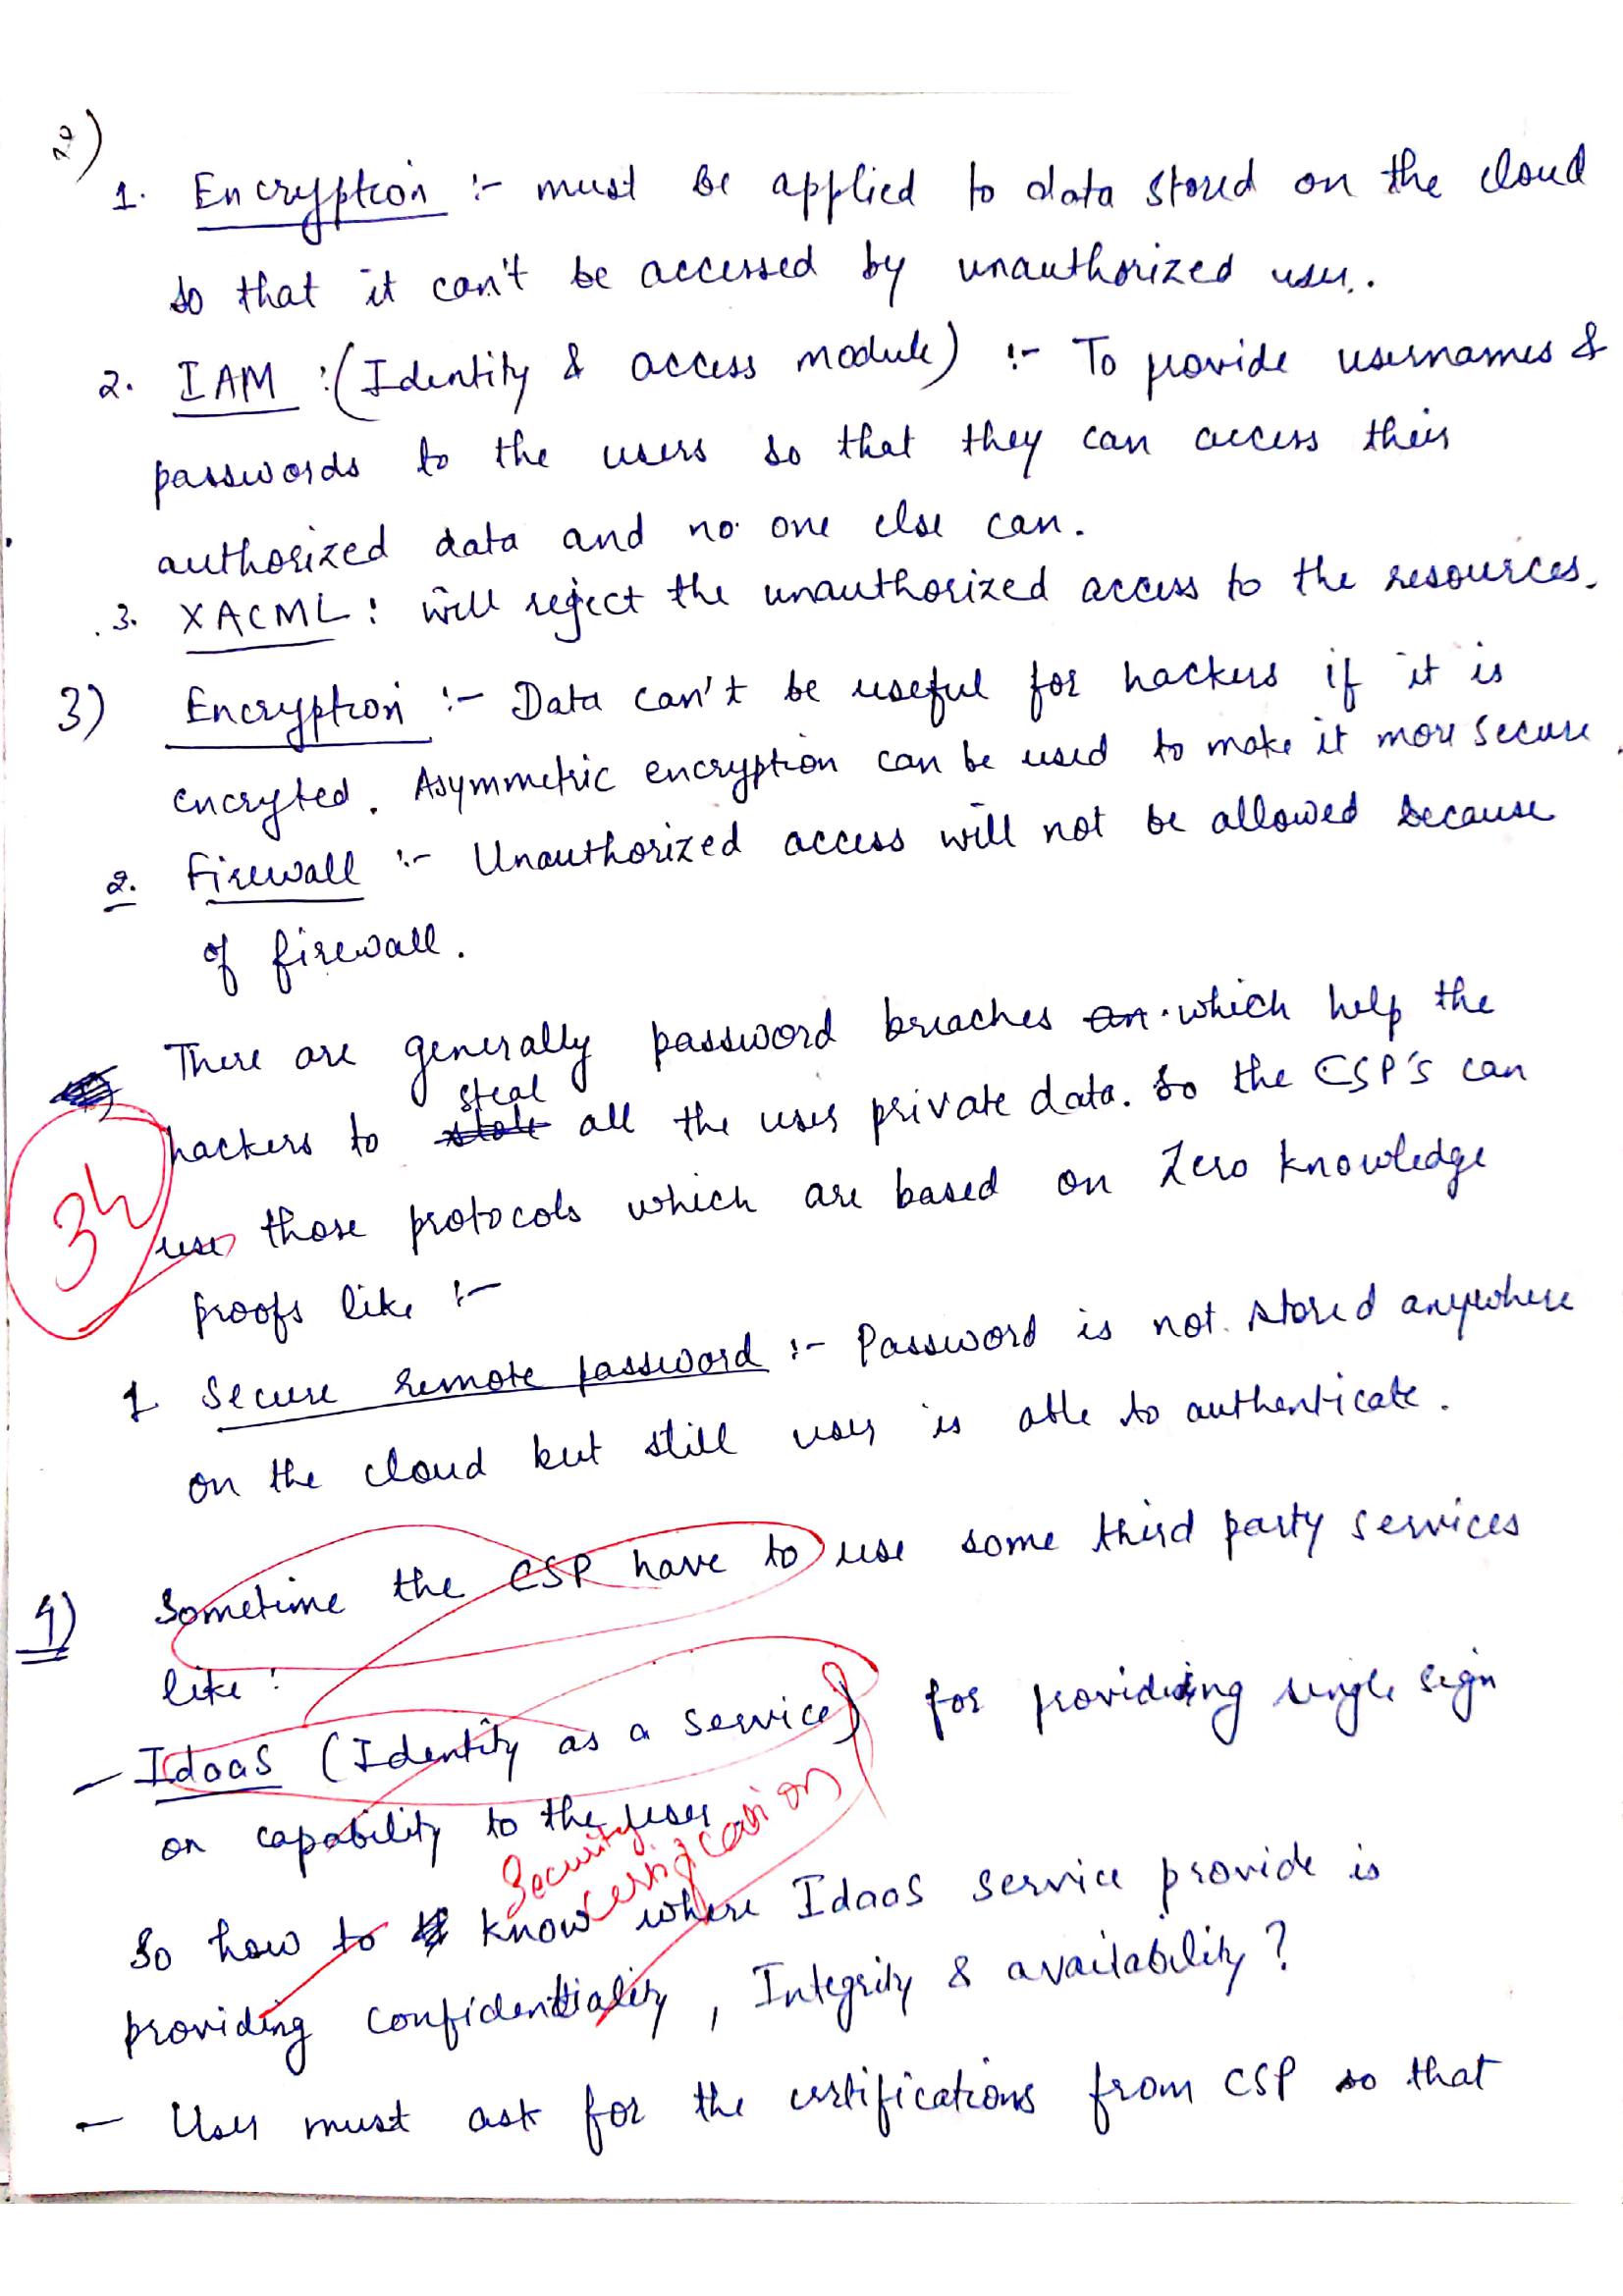 2)
1. Encryption :- must be applied to data stored on the cloud
so that it can't be accessed by unauthorized user.
2. IAM :(Identity & access module) :- To provide usernames &
passwords to the users so that they can access their
authorized data and no one else can.
3. XACML : will reject the unauthorized access to the resources.
3) Encryption :- Data can't be useful for hackers if it is
encryted. Asymmetric encryption can be used to make it more secure.
2. Firewall :- Unauthorized access will not be allowed because
of firewall.
There are generally password breaches an which help the
steal
hackers to stole all the user private data. So the CSP's can
34
use those protocols which are based on Zero knowledge
proofs like :-
1 Secure remote password :- Password is not stored anywhere
on the cloud but still user is able to authenticate.
4) Sometime the CSP have to use some third party services
like :
- Idaas (Identity as a service) for providing single sign
on capability to the user
Security certifications
So how to know where Idaas service provide is
providing confidentiality, Integrity & availability?
- User must ask for the certifications from CSP so that